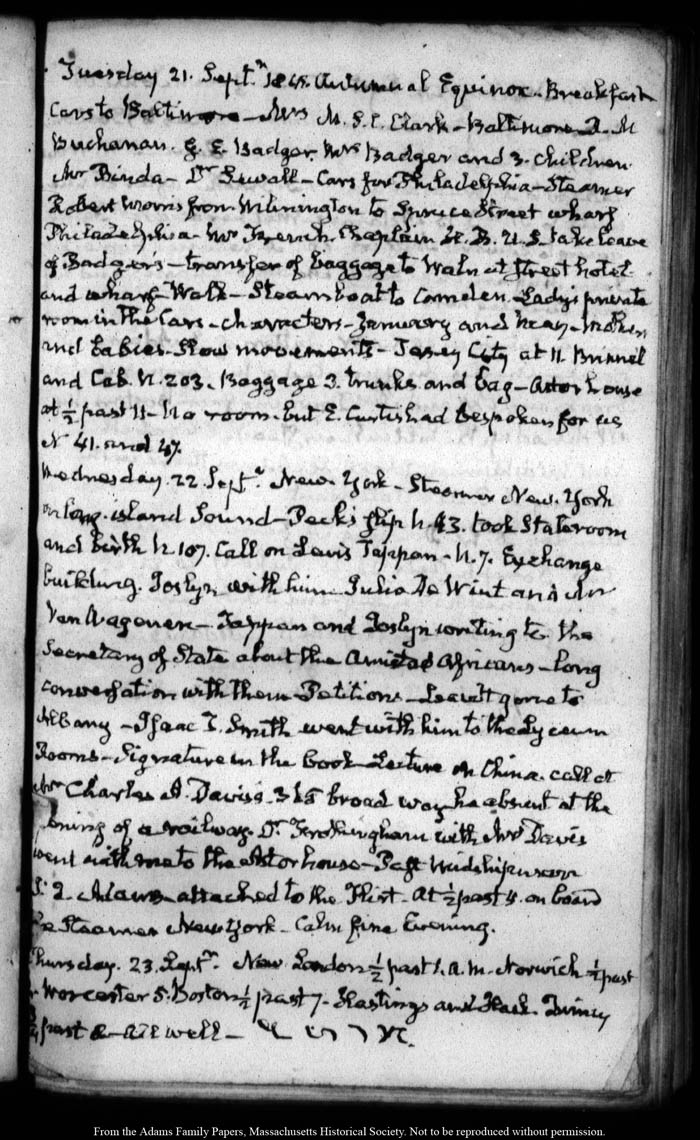 Tuesday 21. Septr. 1841. Autumnal Equinox. Breakfast
Cars to Baltimore – Mrs M. S. C. Clark – Baltimore J. M
Buchanan. G. E. Badger. Mrs Badger and 3. children.
Mr Binda – Dr Sewall – Cars for Philadelphia – Steamer
Robert Morris from Wilmington to Spruce Street wharf
Philadelphia – Mr French. Chaplain H. R. U. S. take leave
of Badgers – transfer of baggage to Walnut street hotel
and wharf – Walk – Steamboat to Camden. Lady's private
room in the Cars – characters – January and May –
and babies. Slow movements – Jersey City at 11. Brunel
and Cab. N. 203. Baggage 3. trunks and bag – Astor house
at ½ past 11 – No room. but E. Curtis had bespoken for us
N. 41. and 47.
Wednesday. 22. Septr. New-York – Steamer New-York
on long-island Sound – Peck's slip N. 43. took Stateroom
and birth N. 107. Call on Lewis Tappan – N. 7. Exchange
building. Joslyn with him. Julia De Wint and Mr
Van Wagenen – Tappan and Joslyn writing to the
Secretary of State about the Amistad Africans – long
conversation with them – Petitions – Leavitt gone to
Albany – Isaac T. Smith went with him to the Lyceum
Rooms – Signature in the book – Lecture on China. call at
Mr Charles A. Davis's. 365 broad way he absent at the
opening of a railway. Dr. Frothingham with Mrs Davis
went with me to the Astor house – Past Midshipman
J. Q. Adams attached to the Flirt. At ½ past 4. on board
the Steamer New York – Calm fine Evening.
Thursday. 23. Septr. New London ½ past 1. A.M. Norwich ½ past
Worcester 5. Boston ½ past 7. Hastings and Hack. Quincy
½ past 8 – All well –
From the Adams Family Papers, Massachusetts Historical Society. Not to be reproduced without permission.